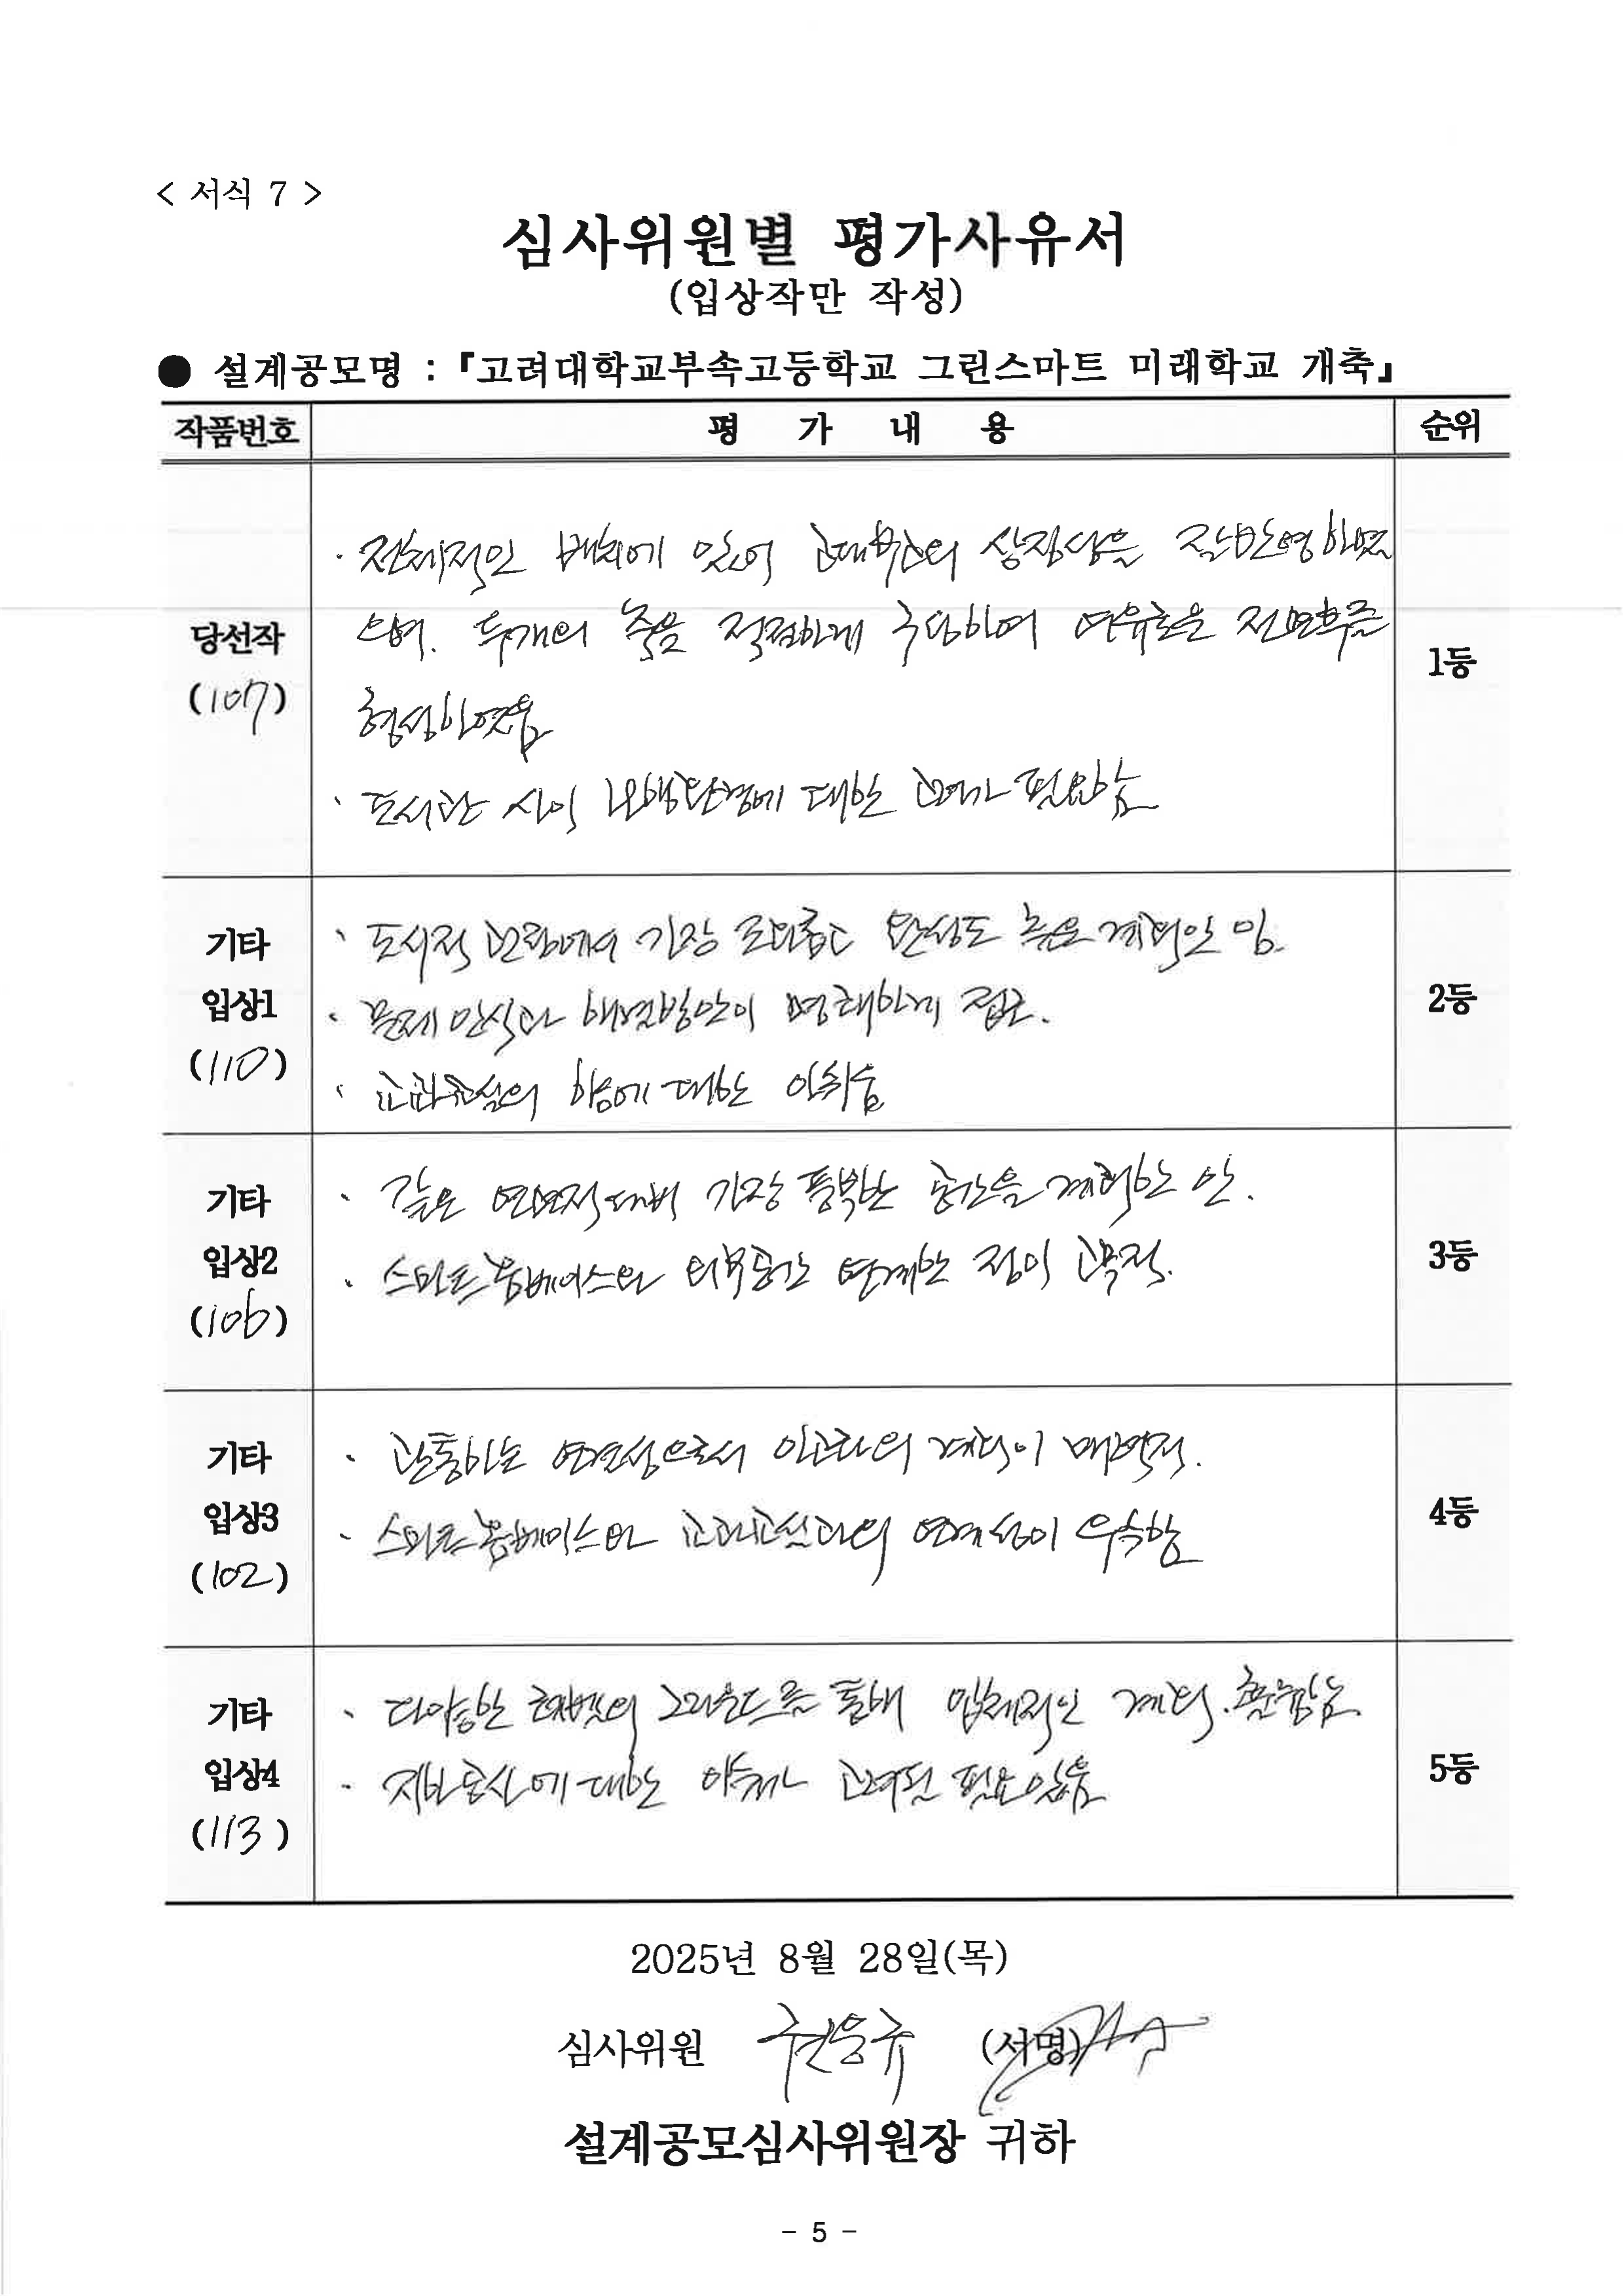 < 서식 7 >
심사위원별 평가사유서
(입상작만 작성)
● 설계공모명 : 『고려대학교부속고등학교 그린스마트 미래학교 개축』
작품번호 평 가 내 용 순위
당선작
(107)
· 전체적인 배치에 있어 고대부고의 상징성을 잘 반영하였
으며. 두개의 축을 적절하게 구성하여 전면후를
형성하였음
· 도서관 사이 보행환경에 대한 고려가 필요함
1등
기타
입상1
(110)
· 도시적 맥락에서 가장 완성도 높은 계획안 임.
· 문제 인식과 해결방안이 명쾌하게 접근.
· 교과교실의 향에 대한 아쉬움
2등
기타
입상2
(106)
· 같은 연면적 대비 가장 풍부한 공간을 계획한 안.
· 스마트 홈베이스와 외부공간 연계한 점이
3등
기타
입상3
(102)
· 관통하는 연결성으로서 아고라의 계획이 매력적.
· 스마트 홈베이스와 교과교실과의 연계성이 우수함
4등
기타
입상4
(113)
· 다양한 레벨의 그라운드를 통해 입체적인 계획.
· 지반공사에 대한 고려될 필요있음
5등
2025년 8월 28일(목)
심사위원 권응규 (서명)
설계공모심사위원장 귀하
- 5 -